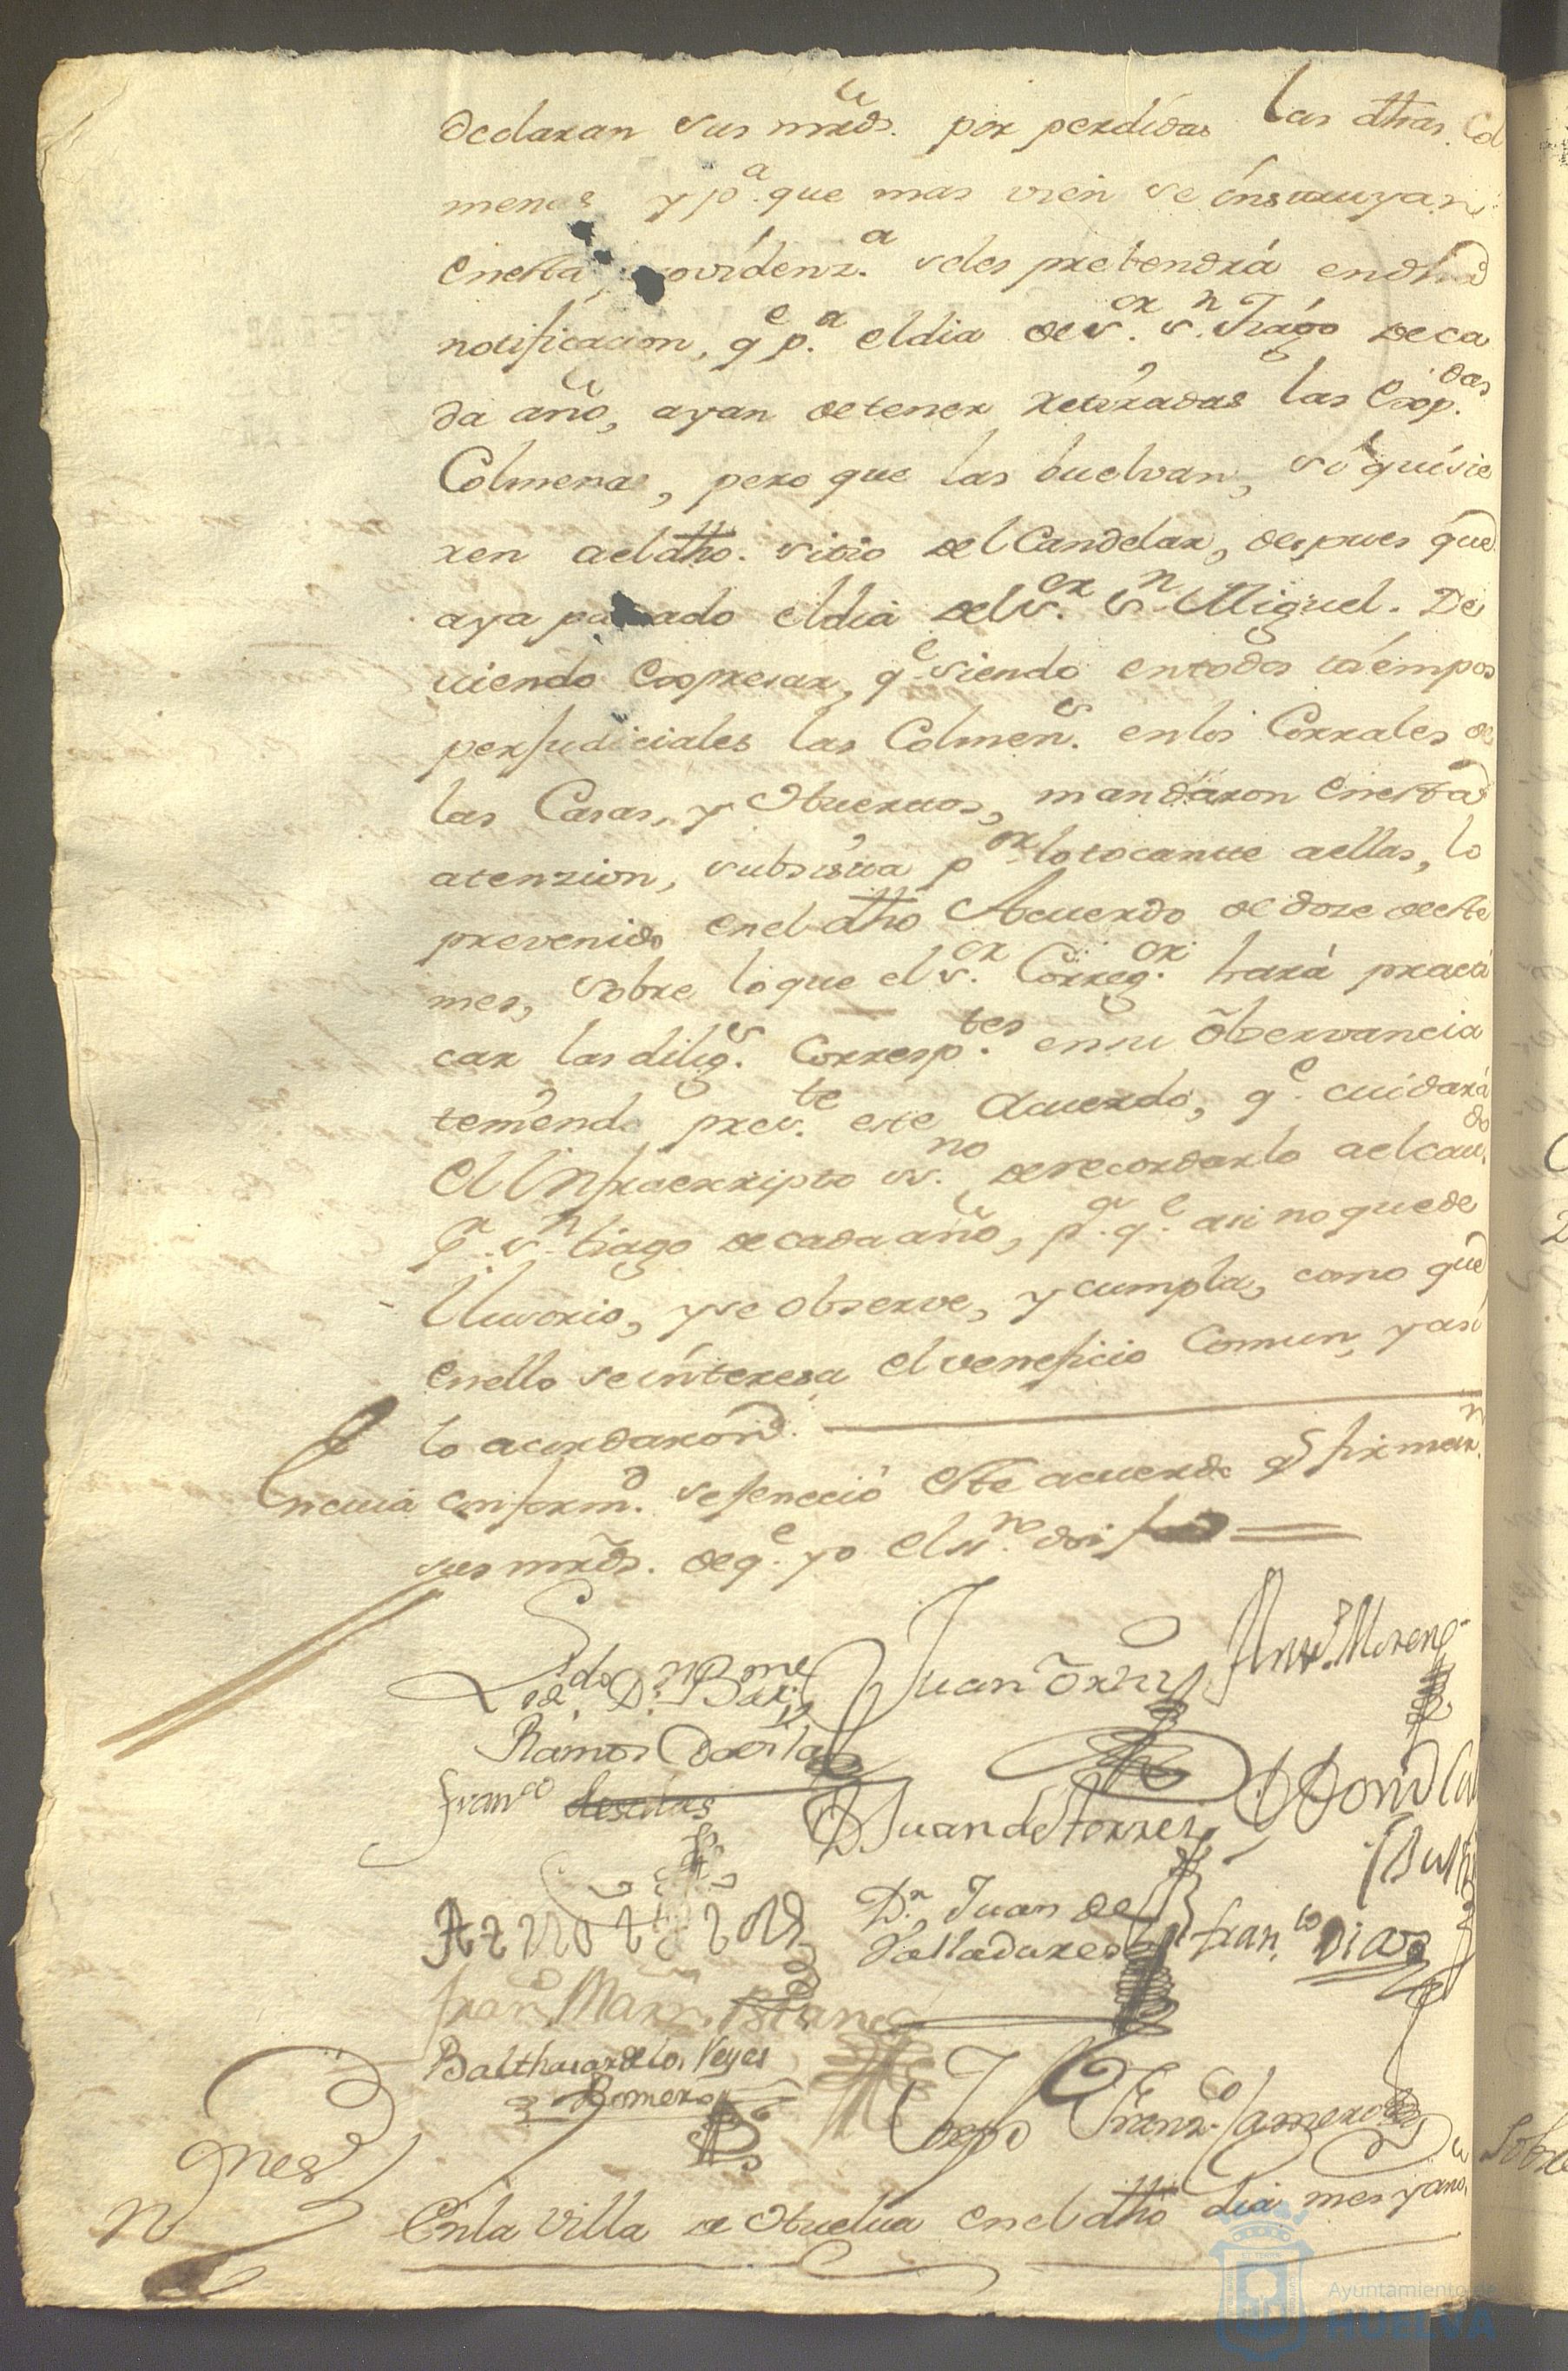 declaran sus mrds. por perdidas las dhas. Col
menas y pa. que mas vien se instruyan
en esta providenza. seles pretendrá en dha
notificacion, qe pa. el dia de sor. sn. Tiago de ca
da año, ayan de tener retiradas las Expdas.
Colmenas, pero que las buelvan, si quisie
ren a el dho. sitio del Candelar, despues que
aya pasado el dia del sor. sn. Miguel. De
viendo Expresar, qe siendo en todos tiempos
perjudiciales las Colmens. en los Corrales de
las Casas, y Huertos, mandaron en esta
atenzion, subsista por lo tocante a ellas, lo
prevenido en el dho Acuerdo de doze de este
mes, sobre lo que el sor. Corregor. hará practi
car las diligs. Corresptes. en su observancia
teniendo preste. este Acuerdo, qe. cuidará
el Infraescripto ssno. de recordarlo a el cavdo
Pr. sn. tiago de cada año, pa. qe. asi no quede
Ilusorio, y se observe, y cumpla, como que
en ello se interesa el veneficio Comun, y asi
lo acordaron.
En cuia conformd. se feneció este acuerdo q firmarn.
sus mrds. de qe. yo el ssno. doi fee
Lizdo. Dn. Barme
Ramos Davila
Juan Ortiz
Antto. Moreno
Franco
Juan de torres
Dn. Juan de
Valladares
Franco Diaz
Fran Marn. Blanco
Balthasar de los Reyes
Romero
Diego Franzco Camero
En la Villa de Huelva en el dho dia mes y año,
Ayuntamiento de
HUELVA